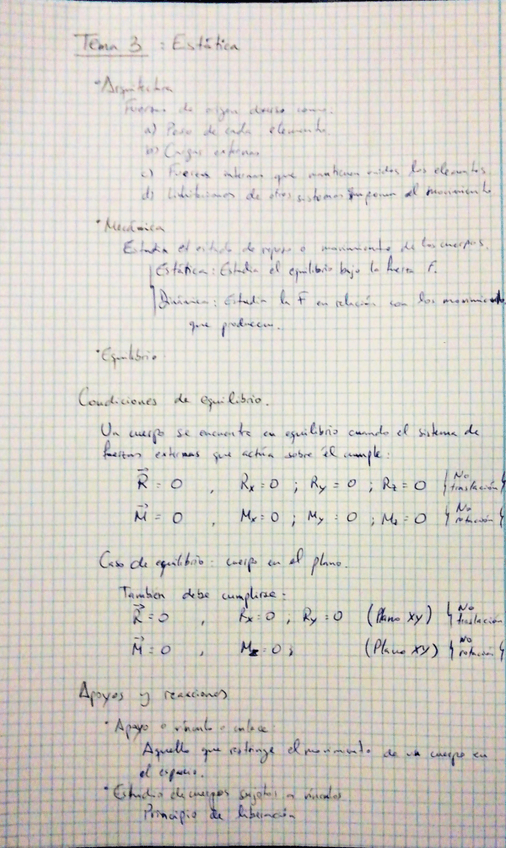 Tema 3 : Estática
• Arquitectura
Fuerzas de origen diverso como.
a) Peso de cada elemento.
b) Cargas externas
c) Fuerzas internas que mantienen unidos los elementos.
d) de otros sistemas al movimiento
• Mecánica
Estudia el estado de reposo o movimiento de los cuerpos.
Estática: Estudia el equilibrio bajo la fuerza F.
Dinámica: Estudia la F en relación con los movimientos
que producen.
• Equilibrio
Condiciones de equilibrio.
Un cuerpo se encuentra en equilibrio cuando el sistema de
fuerzas externas que actúa sobre él cumple:
R⃗ = 0 , Rx = 0 ; Ry = 0 ; Rz = 0 { No traslación }
M⃗ = 0 , Mx = 0 ; My = 0 ; Mz = 0 { No rotación }
Caso de equilibrio: cuerpo en el plano.
Tambien debe cumplirse:
R⃗ = 0 , Rx = 0 ; Ry = 0 (Plano XY) { No traslación
M⃗ = 0 , Mz = 0 ; (Plano XY) { No rotación }
Apoyos y reacciones
• Apoyo o vínculo o enlace:
Aquello que restringe el movimiento de un cuerpo en
el espacio.
• Estudio de cuerpos sujetos a vínculos
Principio de liberación